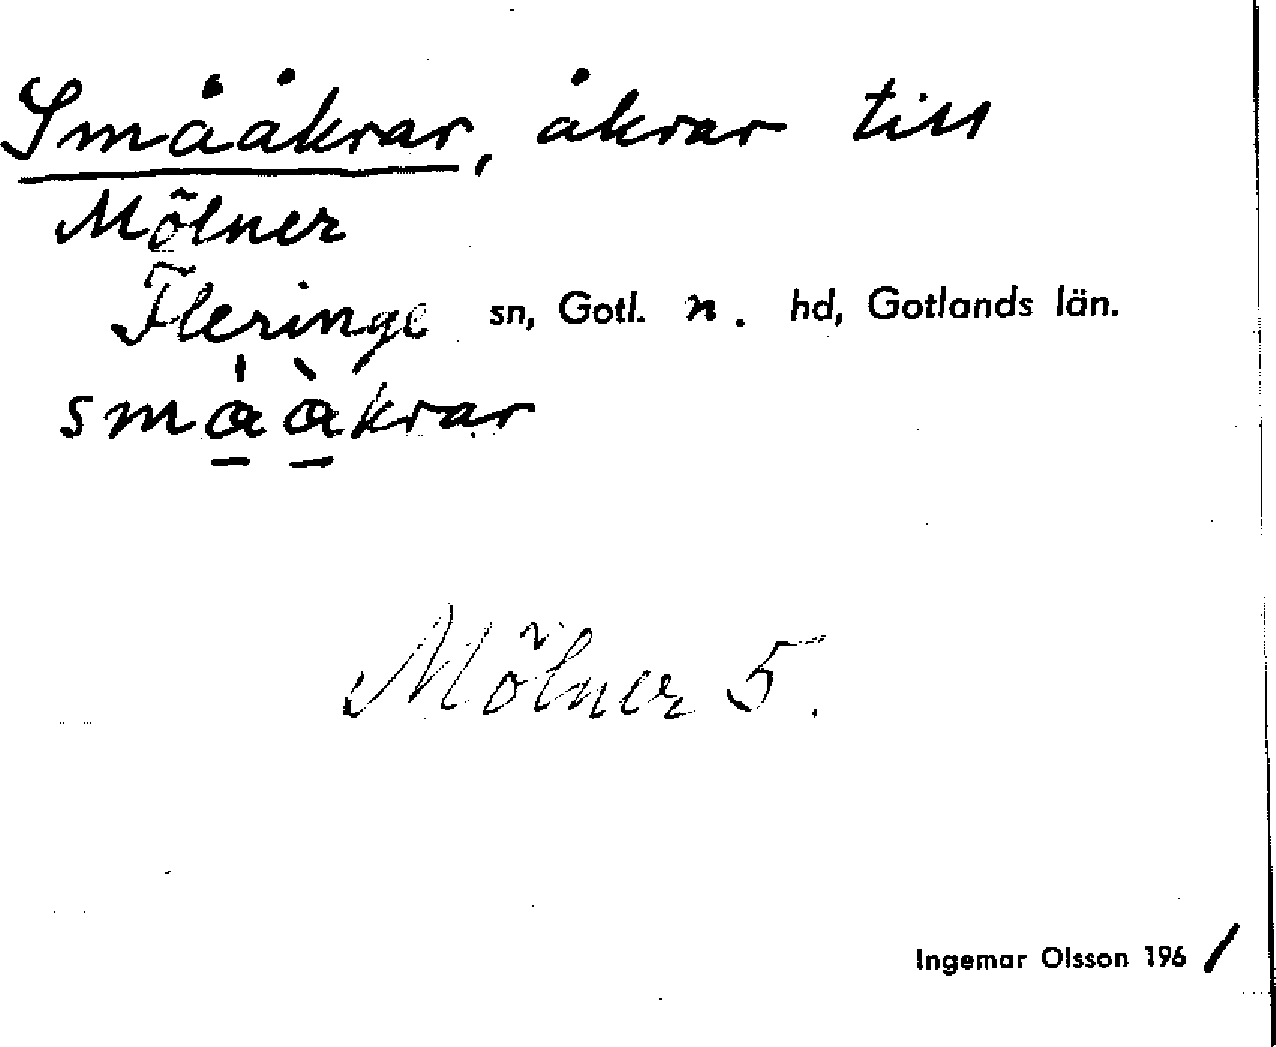 Smååkrar, åkrar till
Mölner
Fleringe sn, Gotl. n. hd, Gotlands län.
små̱̍å̱̀krar
Mölner 5.
Ingemar Olsson 1961